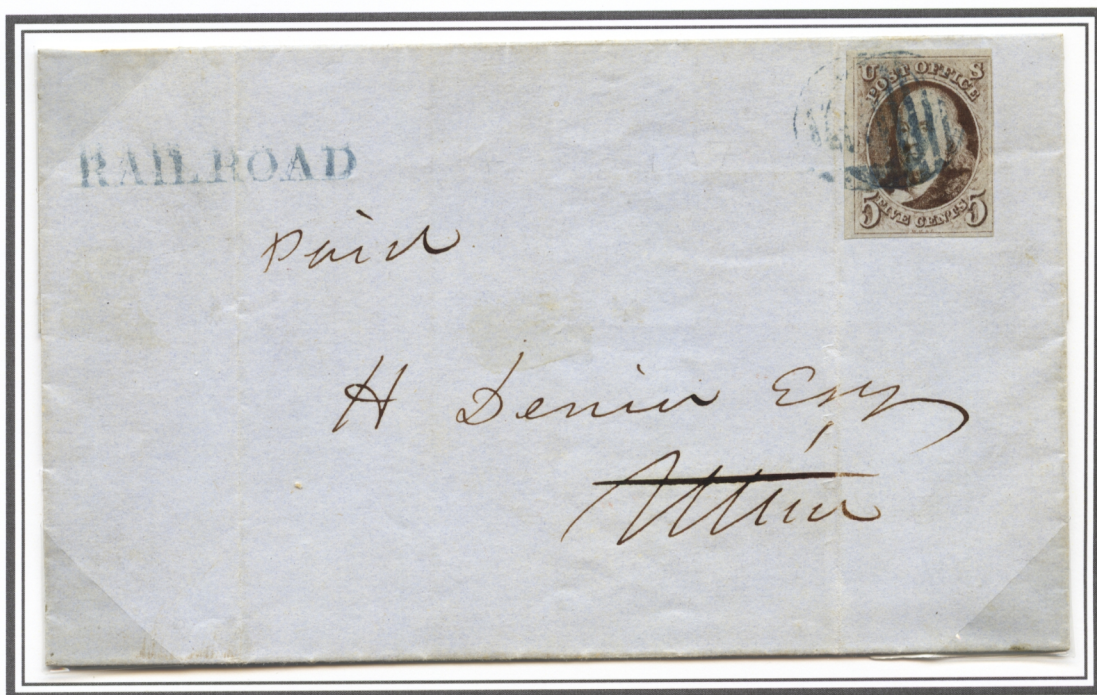 RAILROAD
U S
POST OFFICE
FIVE CENTS
5 5
Paid
H Denio Esq
Utica